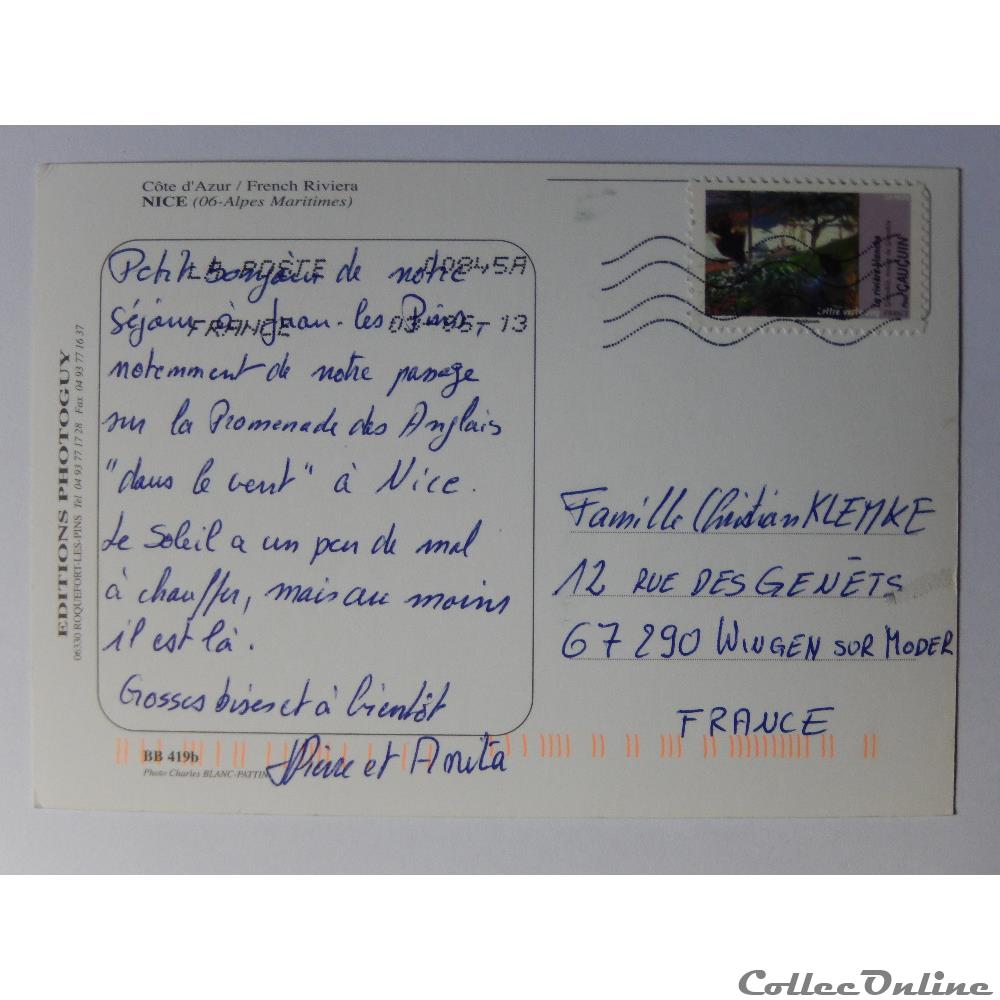 Côte d'Azur / French Riviera
NICE (06-Alpes Maritimes)
Petit bonjour de notre
séjour à Juan-les Pins
notemment de notre passage
sur la Promenade des Anglais
"dans le vent" à Nice.
Le Soleil a un peu de mal
à chauffer, mais au moins
il est là.
Grosses bises et à bientôt
Pierre et Anita
LA POSTE 00845A
FRANCE 13
la rivière blanche
GAUGUIN
Lettre verte
FRANCE
Famille Christian KLEMKE
12 RUE DES GENÊTS
67 290 WINGEN SUR MODER
FRANCE
EDITIONS PHOTOGUY
06330 ROQUEFORT-LES-PINS Tél 04 93 77 17 28 Fax 04 93 77 16 37
BB 419b
Photo Charles BLANC-PATTIN
CollecOnline